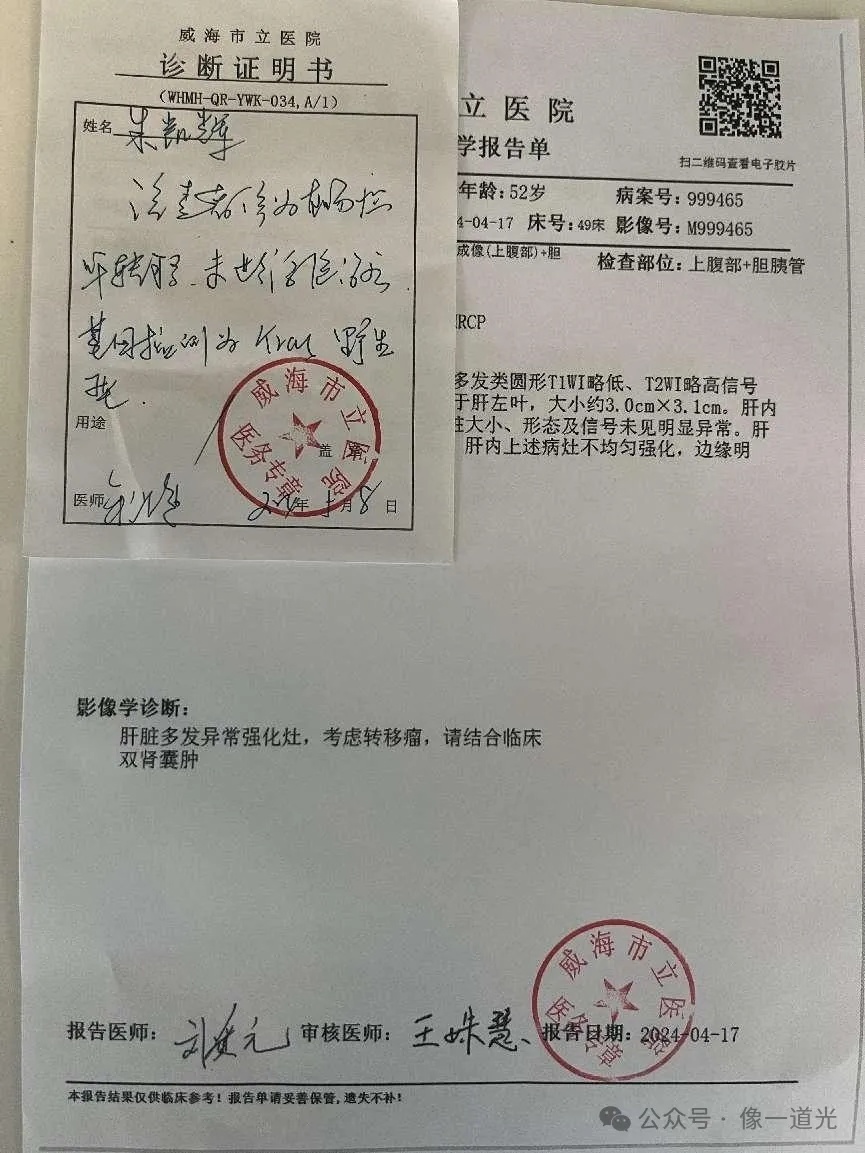 威海市立医院
诊断证明书
(WHMH-QR-YWK-034,A/1)
姓名 朱凯辉
该患者诊为
肝转移
基因检测为 kras 野生
型.
用途
盖章
医师
年 月 8 日
威海市立医院
医务专章
立医院
学报告单
扫二维码查看电子胶片
年龄:52岁 病案号:999465
4-04-17 床号:49床 影像号:M999465
成像(上腹部)+胆 检查部位:上腹部+胆胰管
RCP
多发类圆形T1WI略低、T2WI略高信号
于肝左叶，大小约3.0cm×3.1cm。肝内
脏大小、形态及信号未见明显异常。肝
肝内上述病灶不均匀强化，边缘明
影像学诊断:
肝脏多发异常强化灶，考虑转移瘤，请结合临床
双肾囊肿
威海市立医院
医务专章
报告医师: 审核医师: 王姝慧 报告日期:2024-04-17
本报告结果仅供临床参考！报告单请妥善保管,遗失不补！
公众号·像一道光